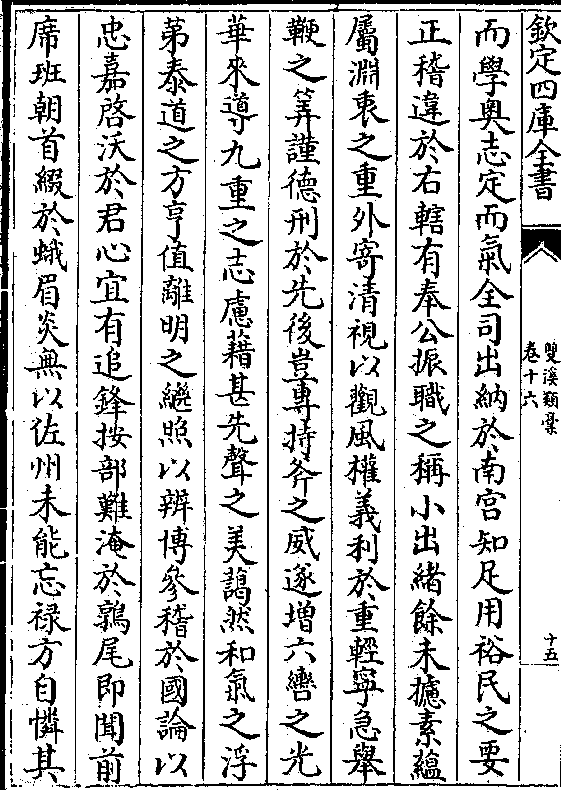 欽定四庫全書
雙溪類稾
卷十六
十五
而學奥志定而氣全司出納於南宮知足用裕民之要
正稽違於右轄有奉公振職之稱小出緒餘未攄素蘊
屬淵衷之重外寄清視以觀風權義利於重輕寜急舉
鞭之筭謹德刑於先後豈專持斧之威遂增六轡之光
華來導九重之志慮藉甚先聲之美藹然和氣之浮
第泰道之方亨值離明之繼照以辨博參稽於國論以
忠嘉啓沃於君心宜有追鋒按部難淹於鶉尾即聞前
席班朝首綴於蛾眉炎無以佐州未能忘祿方自憐其